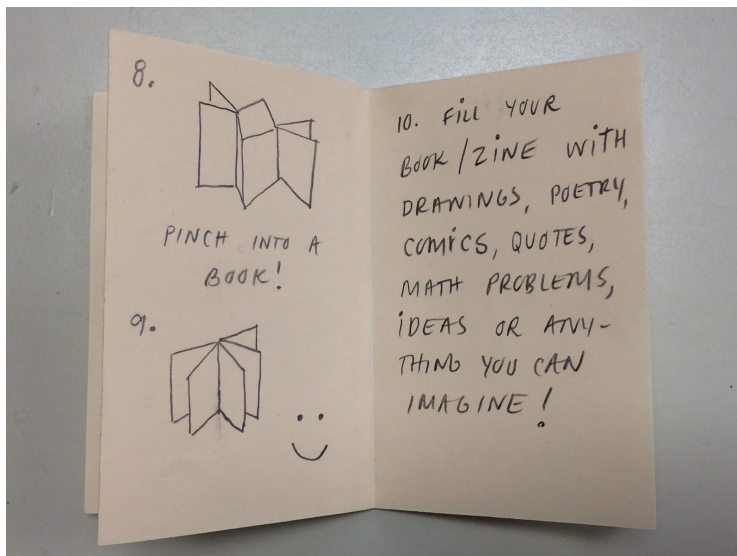 8.
PINCH INTO A
BOOK!
9.
10. FILL YOUR
BOOK/ZINE WITH
DRAWINGS, POETRY,
COMICS, QUOTES,
MATH PROBLEMS,
IDEAS OR ANY-
THING YOU CAN
IMAGINE!